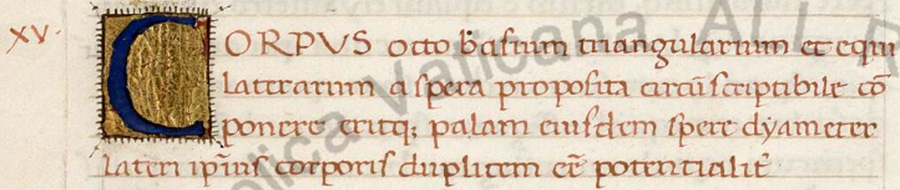 xv. CORPVS octo basium triangularium et equi
laterarum a spera proposita circũ scriptibile cõ
ponere eritq; palam eiusdem spere dyameter
lateri ip̃ius corporis duplicem eẽ potentialit̃